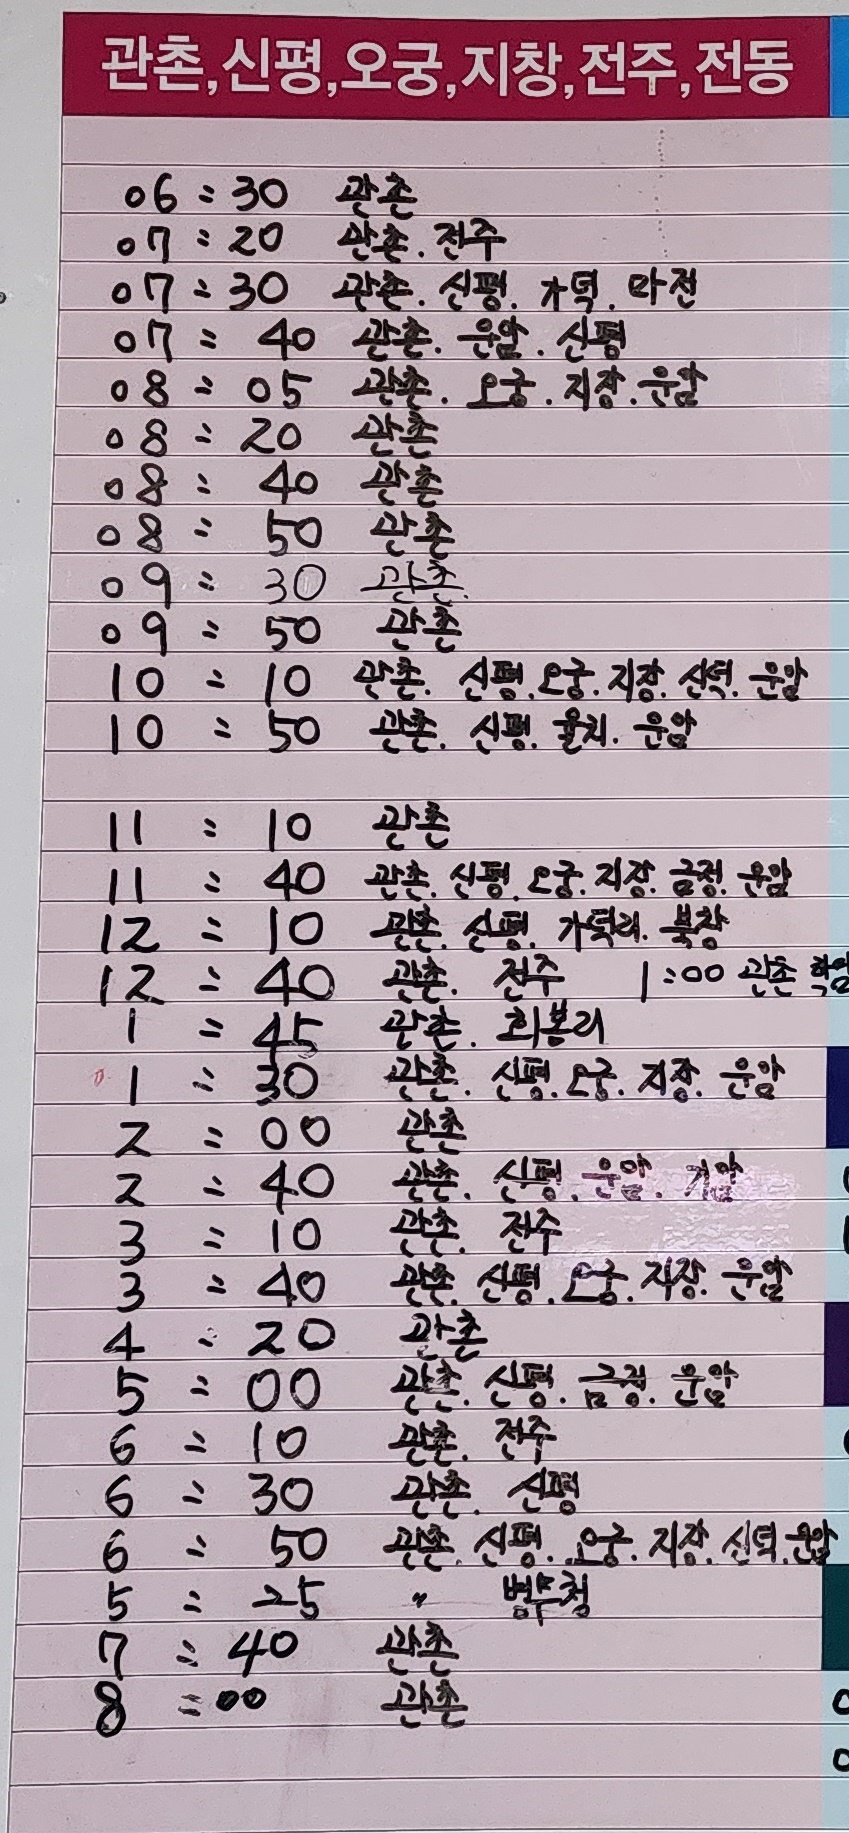 관촌,신평,오궁,지창,전주,전동
06:30 관촌
07:20 관촌.전주
07:30 관촌.신평.가덕.마전
07:40 관촌.운암.신평
08:05 관촌.오궁.지장.운암
08:20 관촌
08:40 관촌
08:50 관촌
09:30 관촌.
09:50 관촌
10:10 관촌.신평.오궁.지장.신덕.운암
10:50 관촌.신평.율치.운암
11:10 관촌
11:40 관촌.신평.오궁.지장.금정.운암
12:10 관촌.신평.가덕리.북창
12:40 관촌.전주 1:00 관촌 학암
1:45 관촌.회봉리
1:30 관촌.신평.오궁.지장.운암
2:00 관촌
2:40 관촌.신평.운암.기암
3:10 관촌.전주
3:40 관촌.신평.오궁.지장.운암
4:20 관촌
5:00 관촌.신평.금정.운암
6:10 관촌.전주
6:30 관촌.신평
6:50 관촌.신평.오궁.지장.신덕.운암
5:25 〃 병무청
7:40 관촌
8:00 관촌